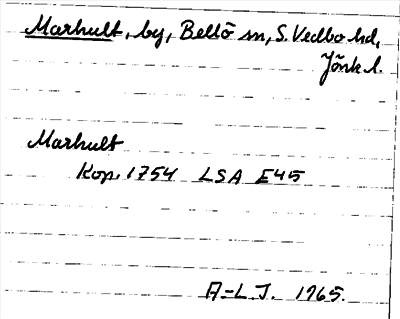 Marhult, by, Bellö sn, S. Vedbo hd,
Jönk l.
Marhult
Kop. 1754 LSA E45
A-L J. 1965.